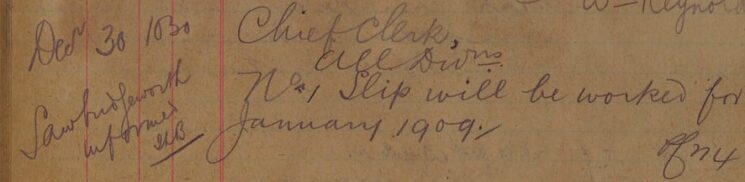 W Reynol
Decr 30 1030 Chief Clerk,
All Divns
No. 1 Slip will be worked for
January 1909.
Sawbridgeworth
informed